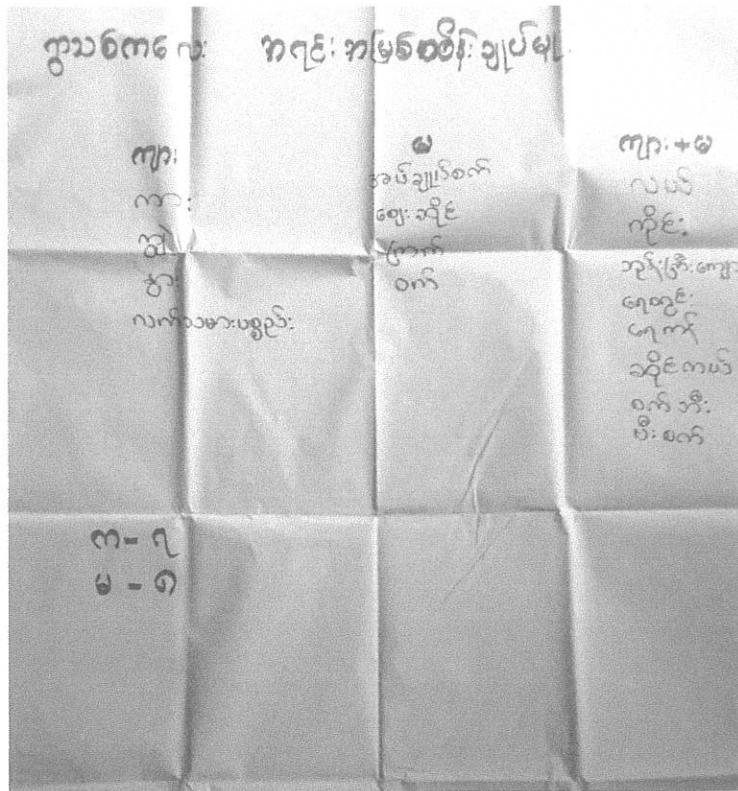 ရွာသစ်ကလေး အရင်းအမြစ်ထိန်းချုပ်မှု
ကျား
ကား
ကျွဲ
နွား
လက်သမားပစ္စည်း
မ
အပ်ချုပ်စက်
ဈေးဆိုင်
ကြက်
ဝက်
ကျား+မ
လယ်
ကိုင်း
ဘုန်းကြီးကျောင်း
ရေတွင်း
ရေကန်
ဆိုင်ကယ်
စက်ဘီး
မီးစက်
က - ၇
မ - ၈